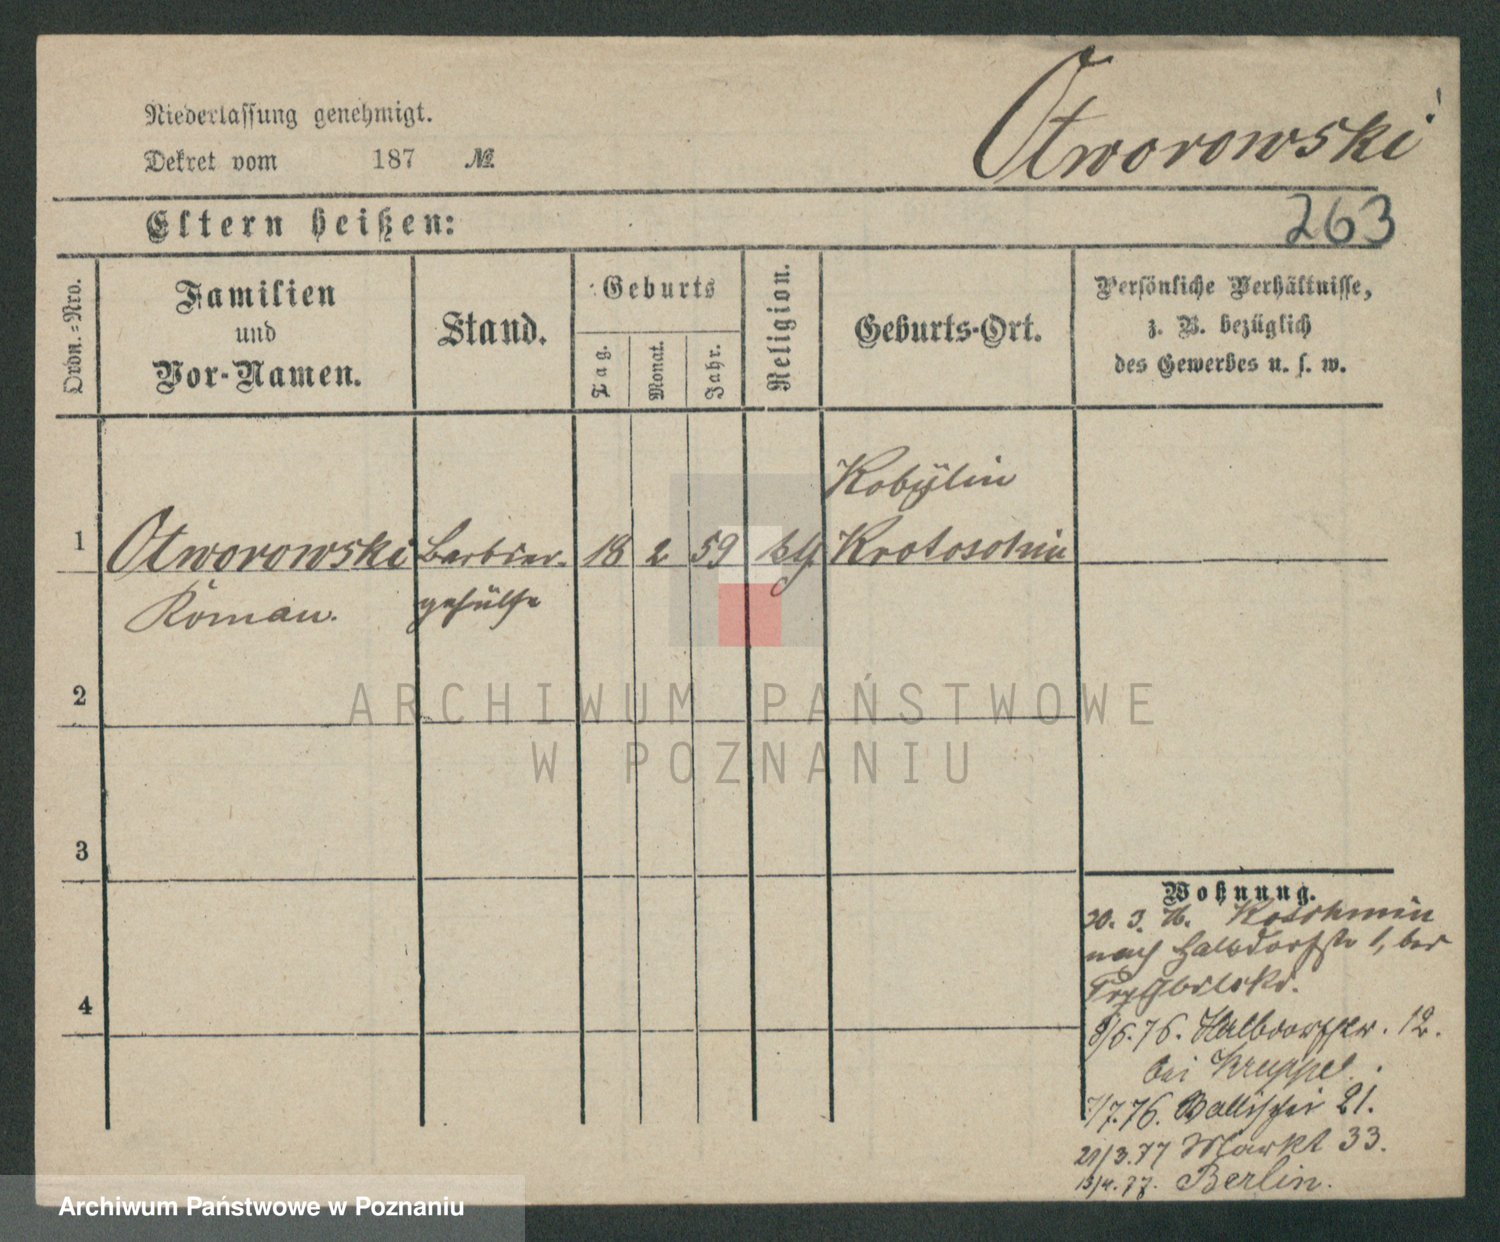 Niederlassung genehmigt.
Dekret vom 187 №
Otworowski
Eltern heißen:
263
Ordn.=Nro.
Familien
und
Vor-Namen.
Stand.
Geburts
Tag.
Monat.
Jahr.
Religion.
Geburts-Ort.
Persönliche Verhältnisse,
z. B. bezüglich
des Gewerbes u. s. w.
Kobylin
1 Otworowski Barbier- 18 2 59 Krotoschin
Roman. gehülfe
2
ARCHIWUM PAŃSTWOWE
W POZNANIU
3
Wohnung.
20. 3. 76. Koschmin
nach Halbdorfstr 1, bei
4
8/6. 76. Halbdorfstr. 12.
bei Kruppel.
1/7. 76. Wallischei 21.
21/3. 77 Markt 33.
13/4. 77. Berlin.
Archiwum Państwowe w Poznaniu